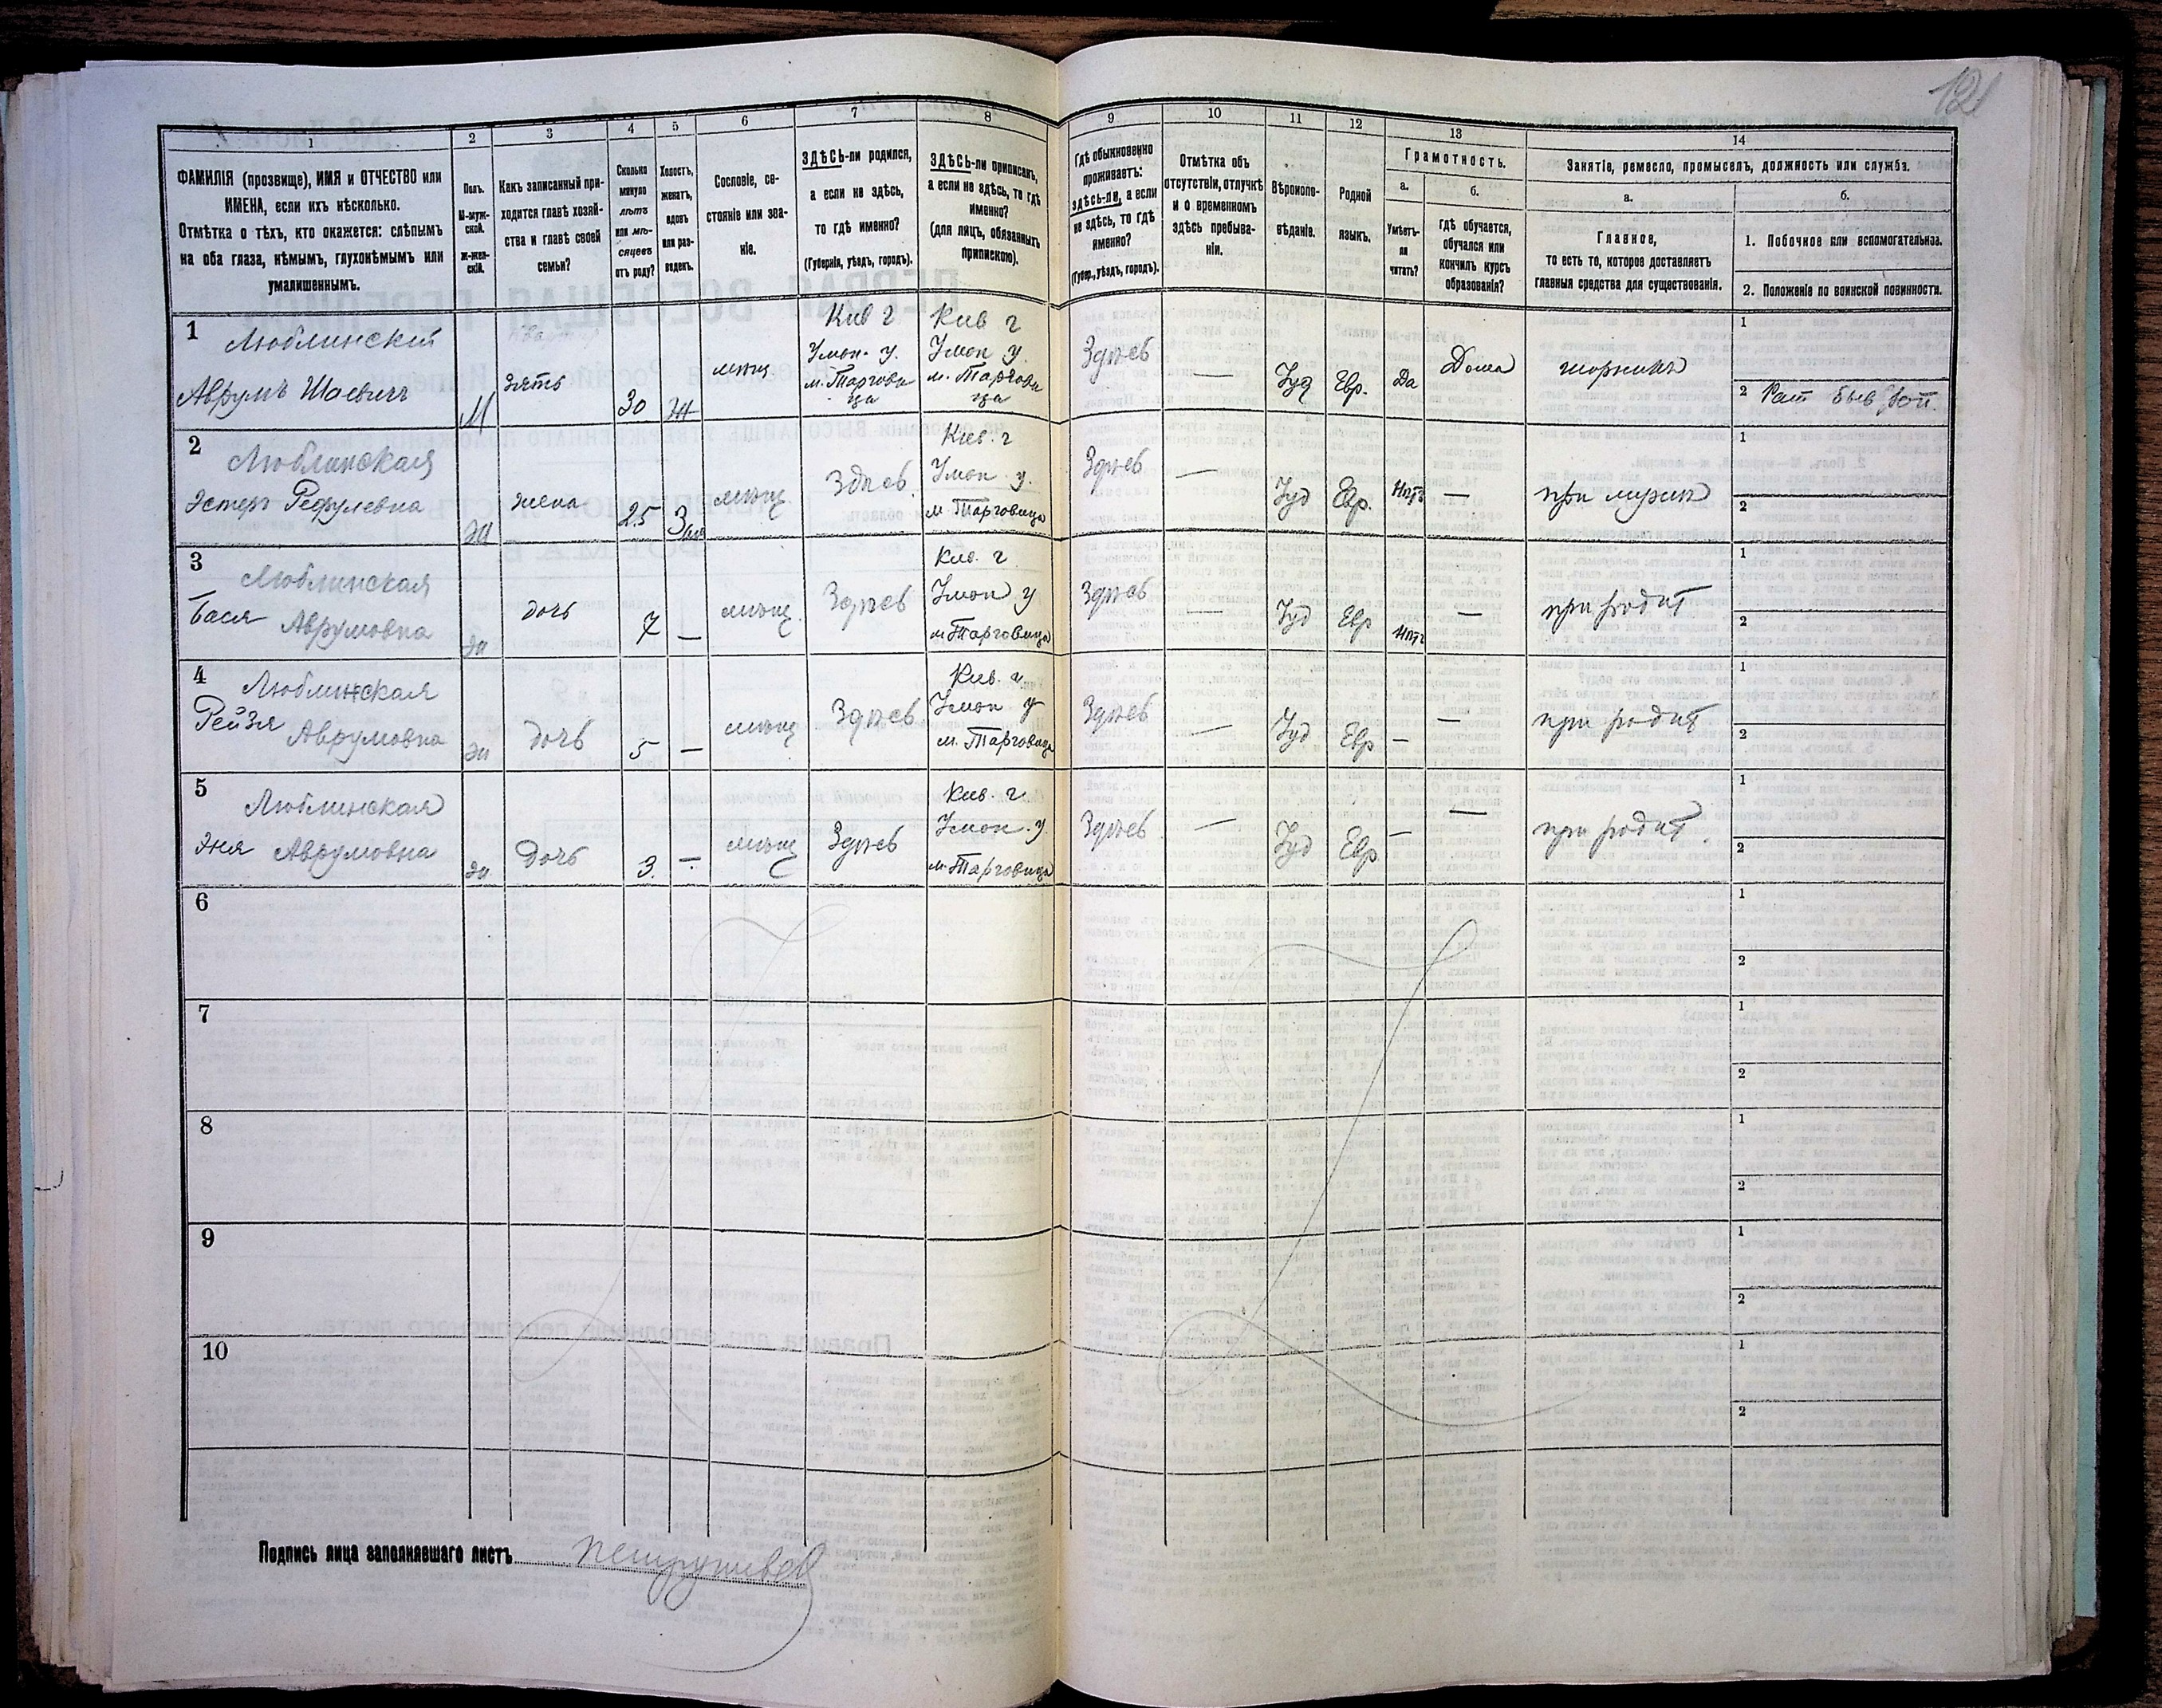 121
1
2
3
4
5
6
7
8
9
10
11
12
13
14
ФАМИЛІЯ (прозвище), ИМЯ и ОТЧЕСТВО или
ИМЕНА, если ихъ нѣсколько.
Отмѣтка о тѣхъ, кто окажется: слѣпымъ
на оба глаза, нѣмымъ, глухонѣмымъ или
умалишеннымъ.
Полъ.
М-муж-
ской.
ж-жен-
скій.
Какъ записанный при-
ходится главѣ хозяй-
ства и главѣ своей
семьи?
Сколько
минуло
лѣтъ
или мѣ-
сяцевъ
отъ роду?
Холостъ,
женатъ,
вдовъ
или раз-
веденъ.
Сословіе, со-
стояніе или зва-
ніе.
ЗДѢСЬ-ли родился,
а если не здѣсь,
то гдѣ именно?
(Губернія, уѣздъ, городъ).
ЗДѢСЬ-ли приписанъ,
а если не здѣсь, то гдѣ
именно?
(для лицъ, обязанныхъ
припискою).
Гдѣ обыкновенно
проживаетъ:
здѣсь-ли, а если
не здѣсь, то гдѣ
именно?
(Губер., уѣздъ, городъ).
Отмѣтка объ
отсутствіи, отлучкѣ
и о временномъ
здѣсь пребыва-
ніи.
Вѣроиспо-
вѣданіе.
Родной
языкъ.
Грамотность.
а.
Умѣетъ-
ли
читать?
б.
Гдѣ обучается,
обучался или
кончилъ курсъ
образованія?
Занятіе, ремесло, промыселъ, должность или служба.
а.
Главное,
то есть то, которое доставляетъ
главныя средства для существованія.
б.
1. Побочное или вспомогательное.
2. Положеніе по воинской повинности.
1
Люблинскій
Аврумъ Шаевичъ
М
зять
30
Ж
мѣщ
Кив г
Уман. у.
м. Таргови
ца
Кив г
Уман у.
м. Таргови
ца
Здѣсь
—
Іуд
Евр.
Да
Дома
шорникъ
1
2 Рат быв
2
Люблинская
Эстеръ
жена
25
мѣщ.
Здѣсь.
Кив. г
Уман у.
м Тарговица
Здѣсь
—
Іуд
Евр.
Нѣтъ
—
при мужѣ
1
2
3
Люблинская
Бася Аврумовна
дочь
7
—
мѣщ.
Здѣсь
Кив. г
Уман у
м Тарговица
Здѣсь
—
Іуд
Евр
Нѣтъ
—
при родит
1
2
4
Люблинская
Рейзя Аврумовна
дочь
5
—
мѣщ
Здѣсь
Кив. г.
Уман у
м. Тарговица
Здѣсь
—
Іуд
Евр
—
—
при родит
1
2
5
Люблинская
Эня Аврумовна
дочь
3.
—
мѣщ
Здѣсь
Кив. г
Уман. у.
м. Тарговица
Здѣсь.
—
Іуд
Евр
—
—
при родит.
1
2
6
1
2
7
1
2
8
1
2
9
1
2
10
1
2
Подпись лица заполнявшаго листъ